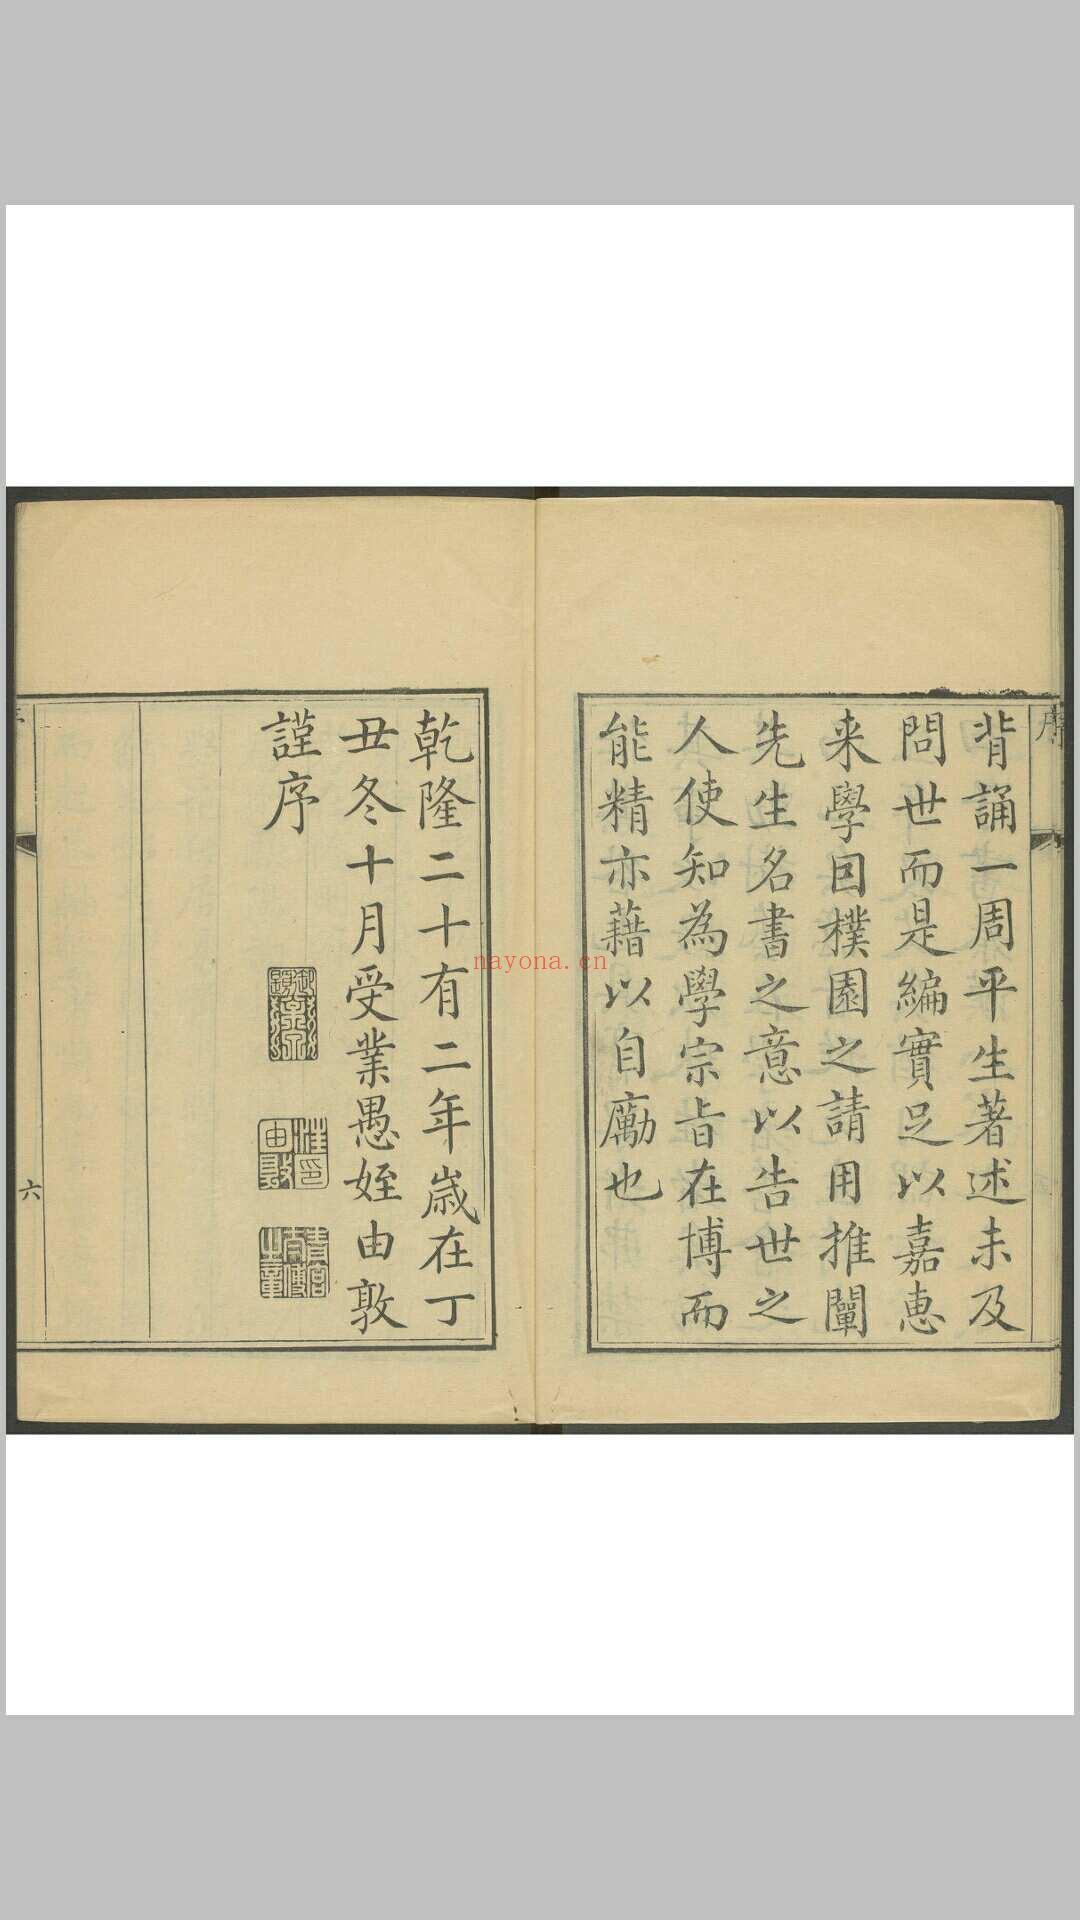 序
背誦一周平生著述未及
問世而是編實足以嘉惠
来學因樸園之請用推闡
先生名書之意以告世之
人使知為學宗旨在博而
能精亦藉以自勵也
乾隆二十有二年歲在丁
丑冬十月受業愚姪由敦
謹序
汪印由敦
青宮太傅之章
六
nayona.cn